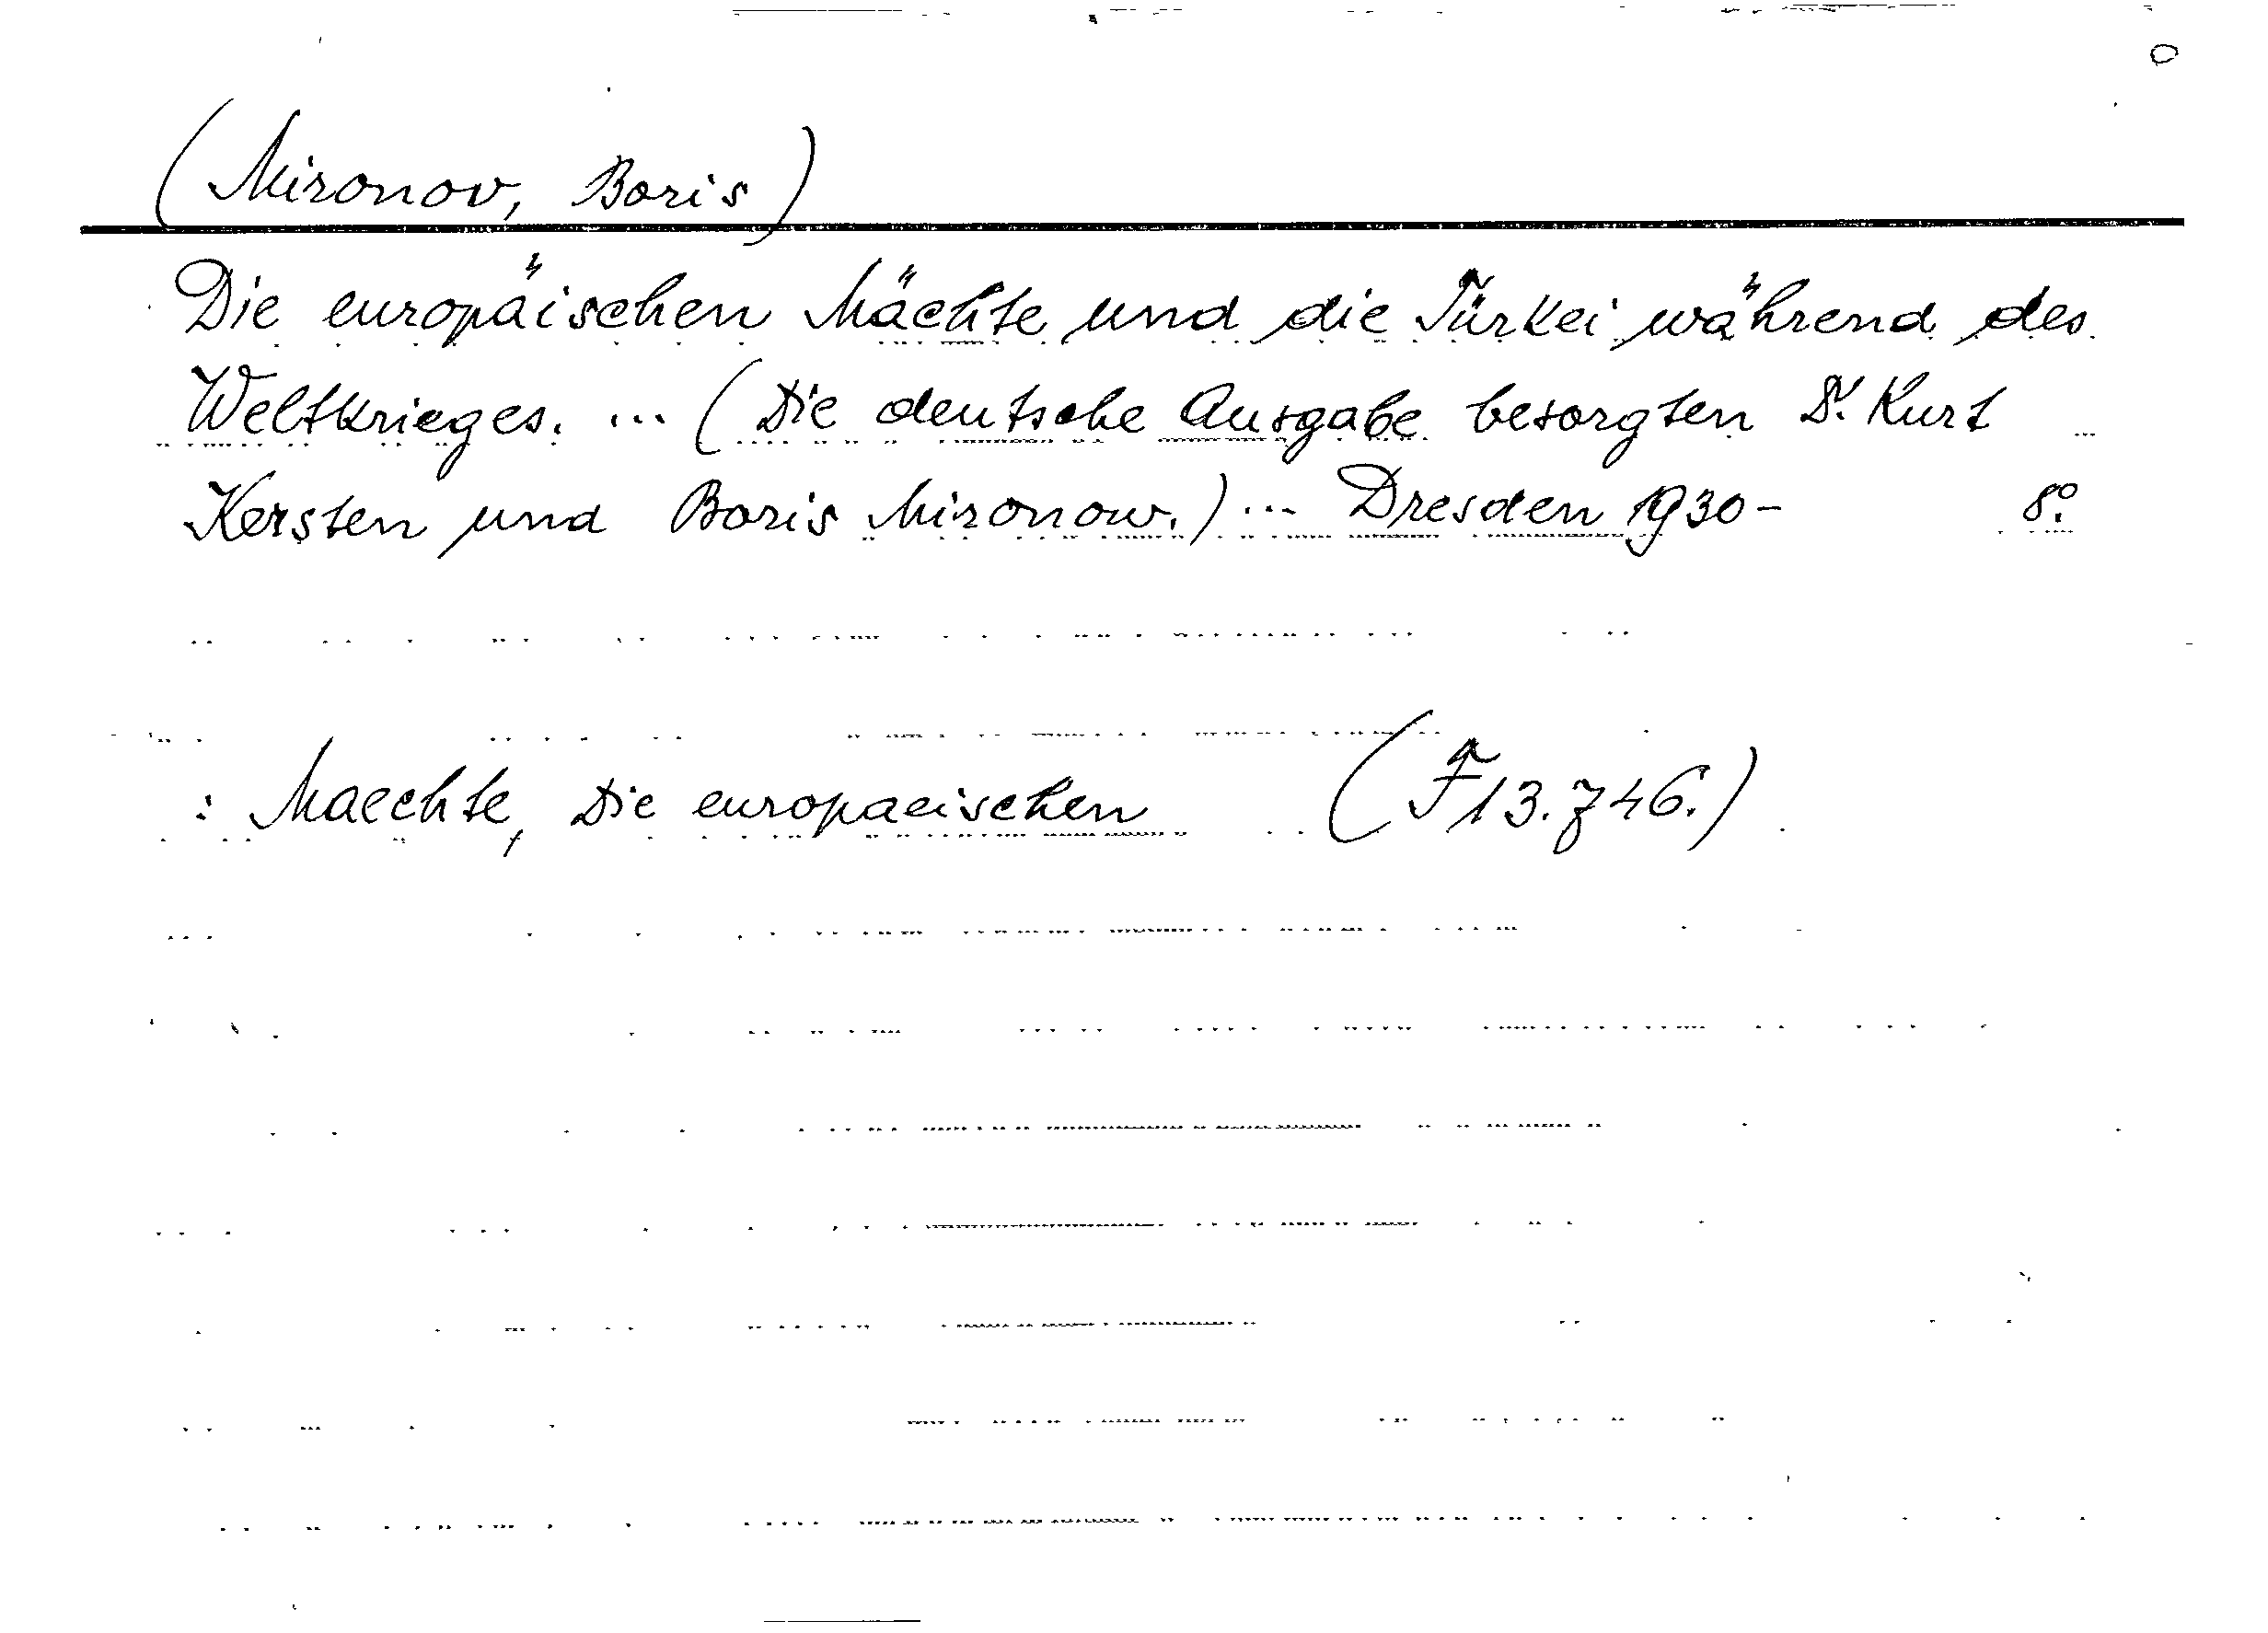 (Mironov, Boris)
Die europäischen Mächte und die Türkei während des
Weltkrieges. ... (Die deutsche Ausgabe besorgten Dr. Kurt
Kersten und Boris Mironow.) ... Dresden 1930- 8°.
: Maechte, Die europaeischen (F13.746.)